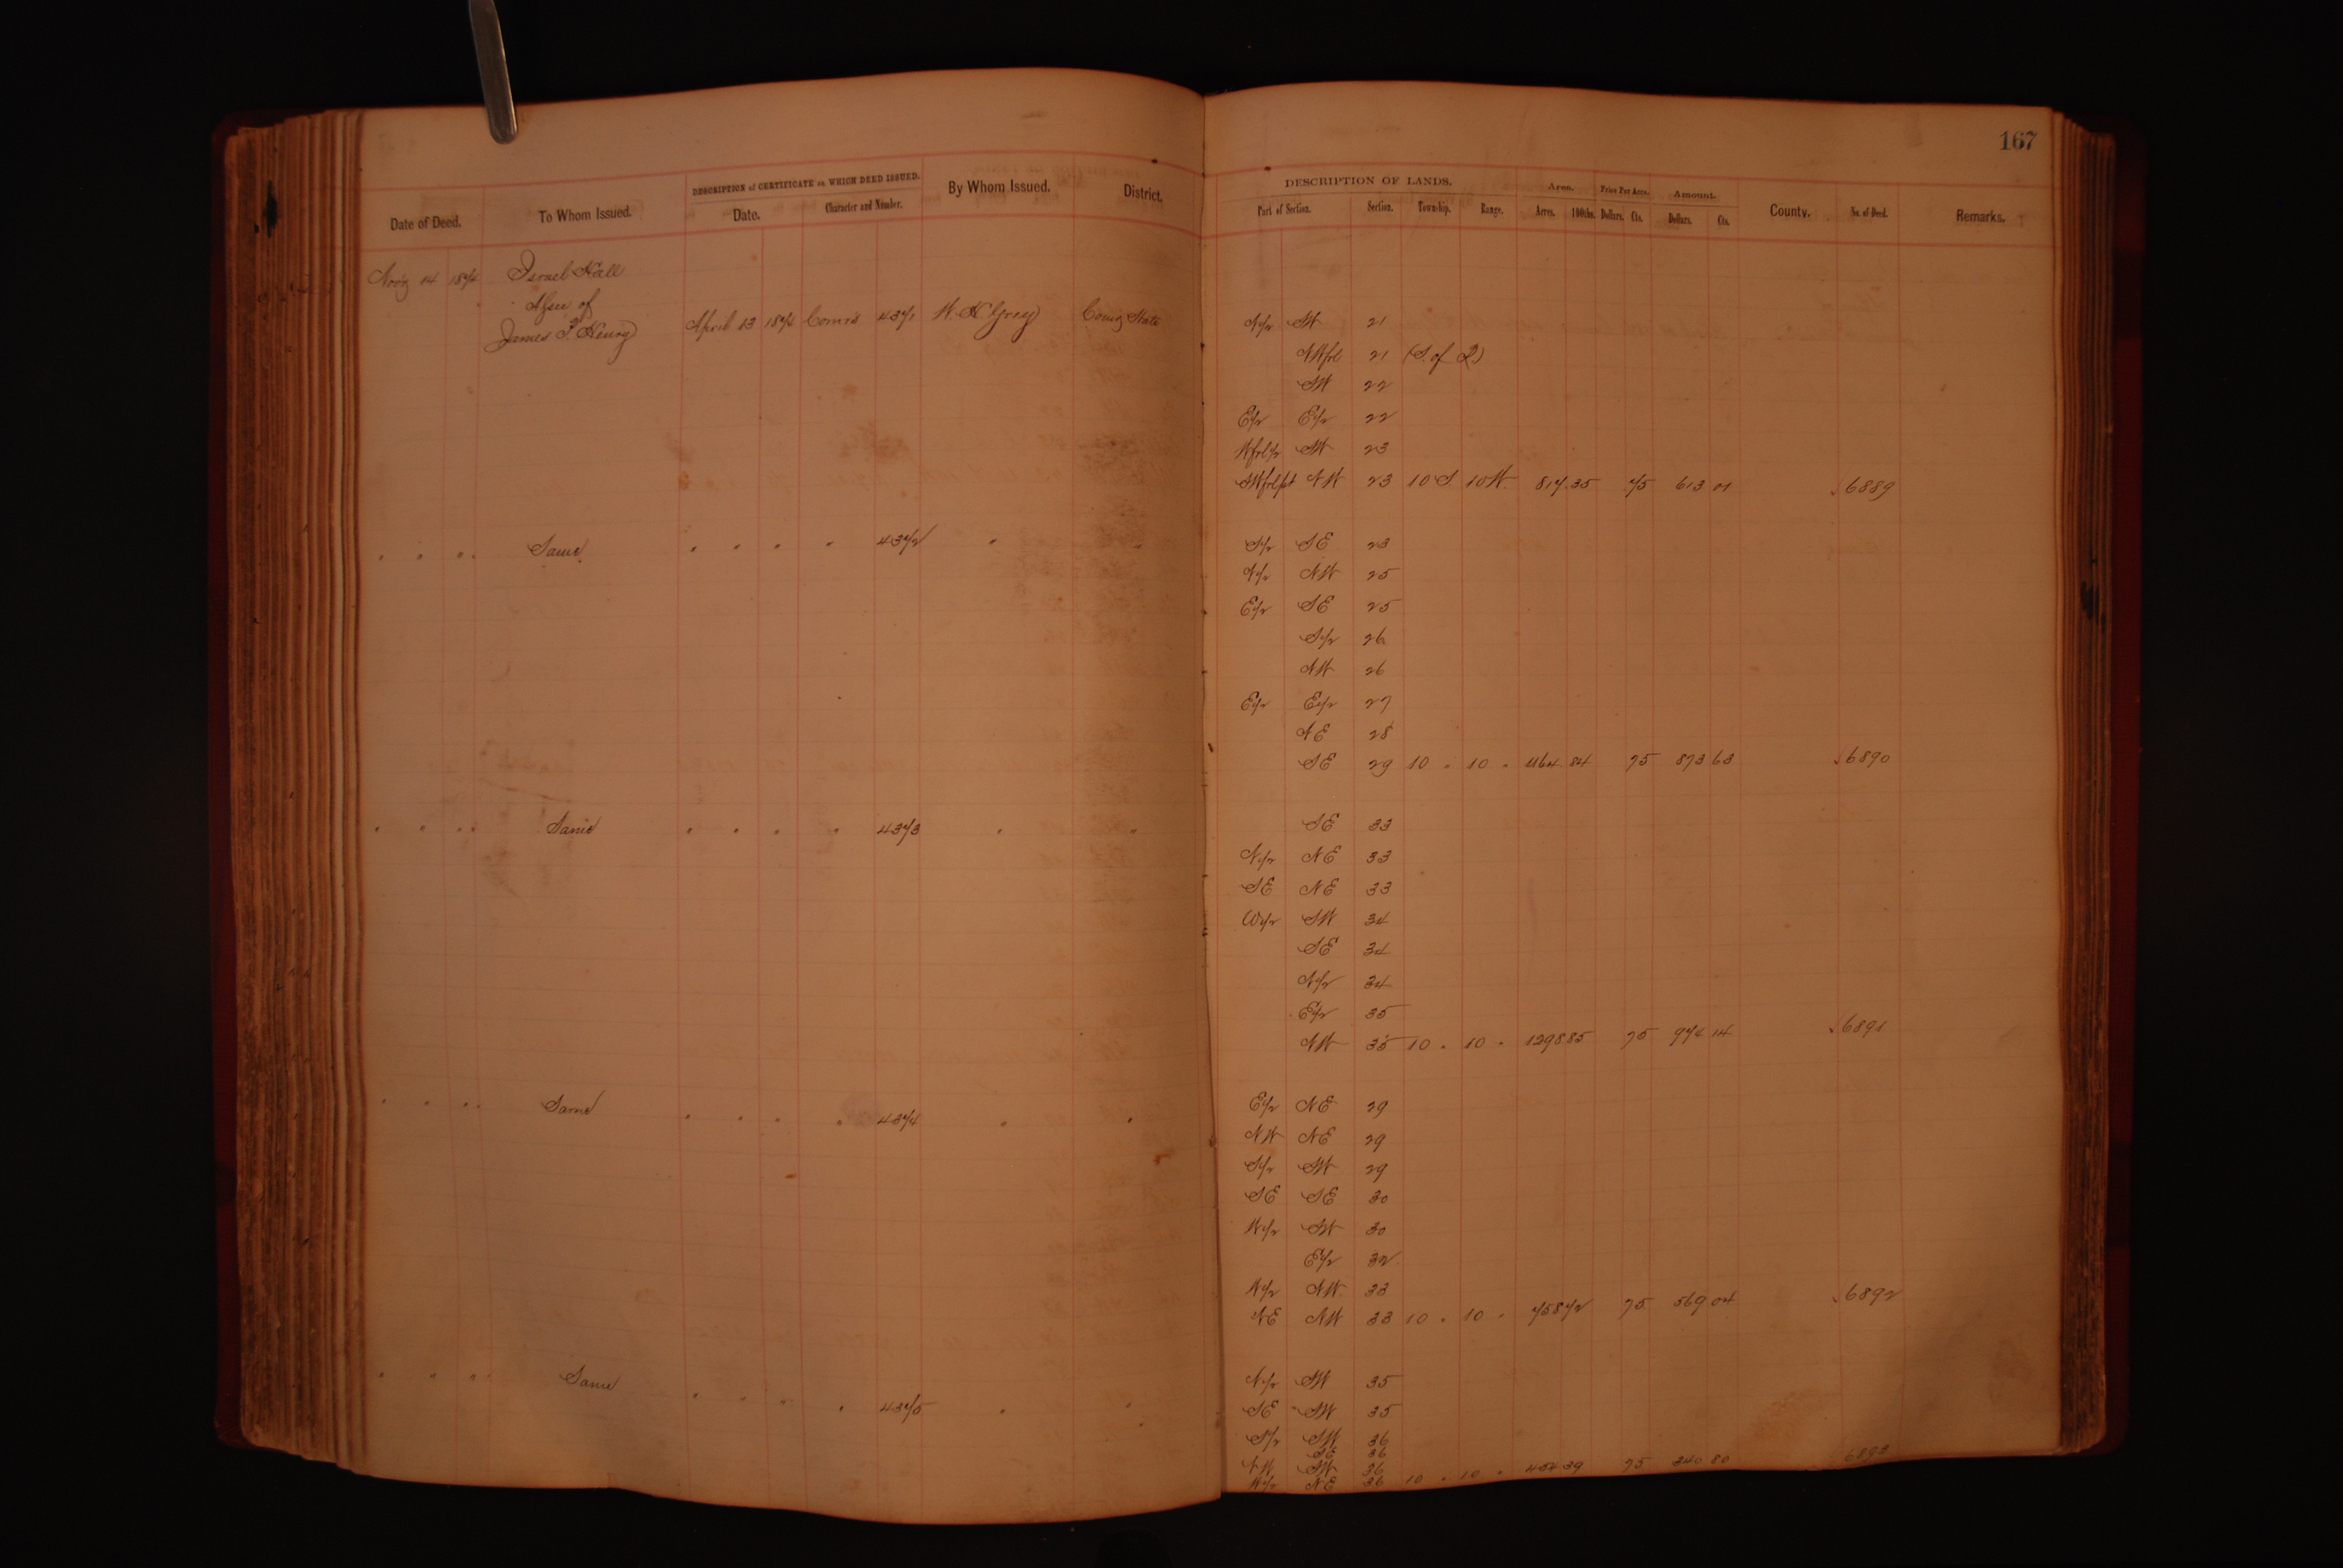 167
DESCRIPTION of CERTIFICATE on WHICH DEED ISSUED. DESCRIPTION OF LANDS. Area. Price Per Acre. Amount.
Date of Deed. To Whom Issued. Date. Character and Number. By Whom Issued. District. Part of Section. Section. Township. Range. Acres. 100ths. Dollars. Cts. Dollars. Cts. County. No. of Deed. Remarks.
Nov 14 1874 Israel Hall
Asfee of
James F. Henry April 13 1874 Com's 4371 W. K. Grey Com'g State N½ SW 21
NWfrl 21 (S. of
SW 22
E½ E½ 22
Wfrl½ SW 23
SWfrlpt NW 23 10 S. 10 W. 817.35 75 613 01 6889
" " " " Same " " " " 4372 " " S½ SE 23
N½ NW 25
E½ SE 25
S½ 26
NW 26
E½ E½ 27
NE 28
SE 29 10 " 10 " 1164 84 75 873 63 6890
" " " " Same " " " " 4373 " " SE 33
N½ NE 33
SE NE 33
W½ SW 34
SE 34
N½ 34
E½ 35
NW 35 10 " 10 " 1298 85 75 974 14 6891
" " " " Same " " " " 4374 " " E½ NE 29
NW NE 29
S½ SW 29
SE SE 30
W½ SW 30
E½ 32
W½ NW 33
NE NW 33 10 " 10 " 758 72 75 569 04 6892
" " " " Same " " " " 4375 " " N½ SW 35
SE SW 35
S½ SW 36
SE 36
NW SW 36
W½ NE 36 10 " 10 " 454 39 75 340 80 6893